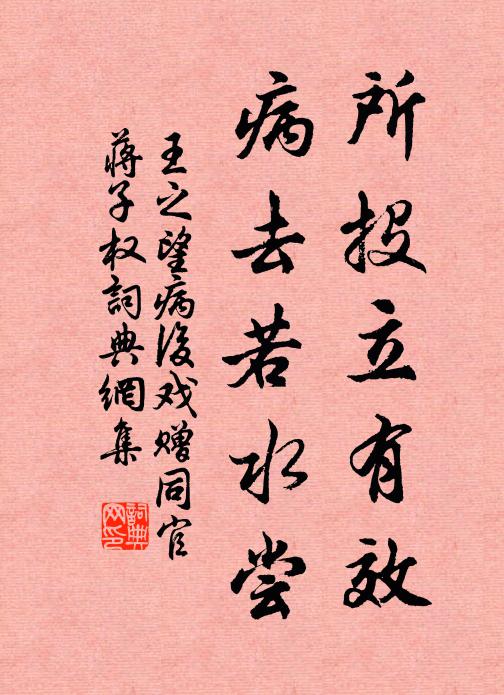 所投立有效
病去若水尝
王之望病後戏赠同官
蒋子权詞典網集
詞典网印